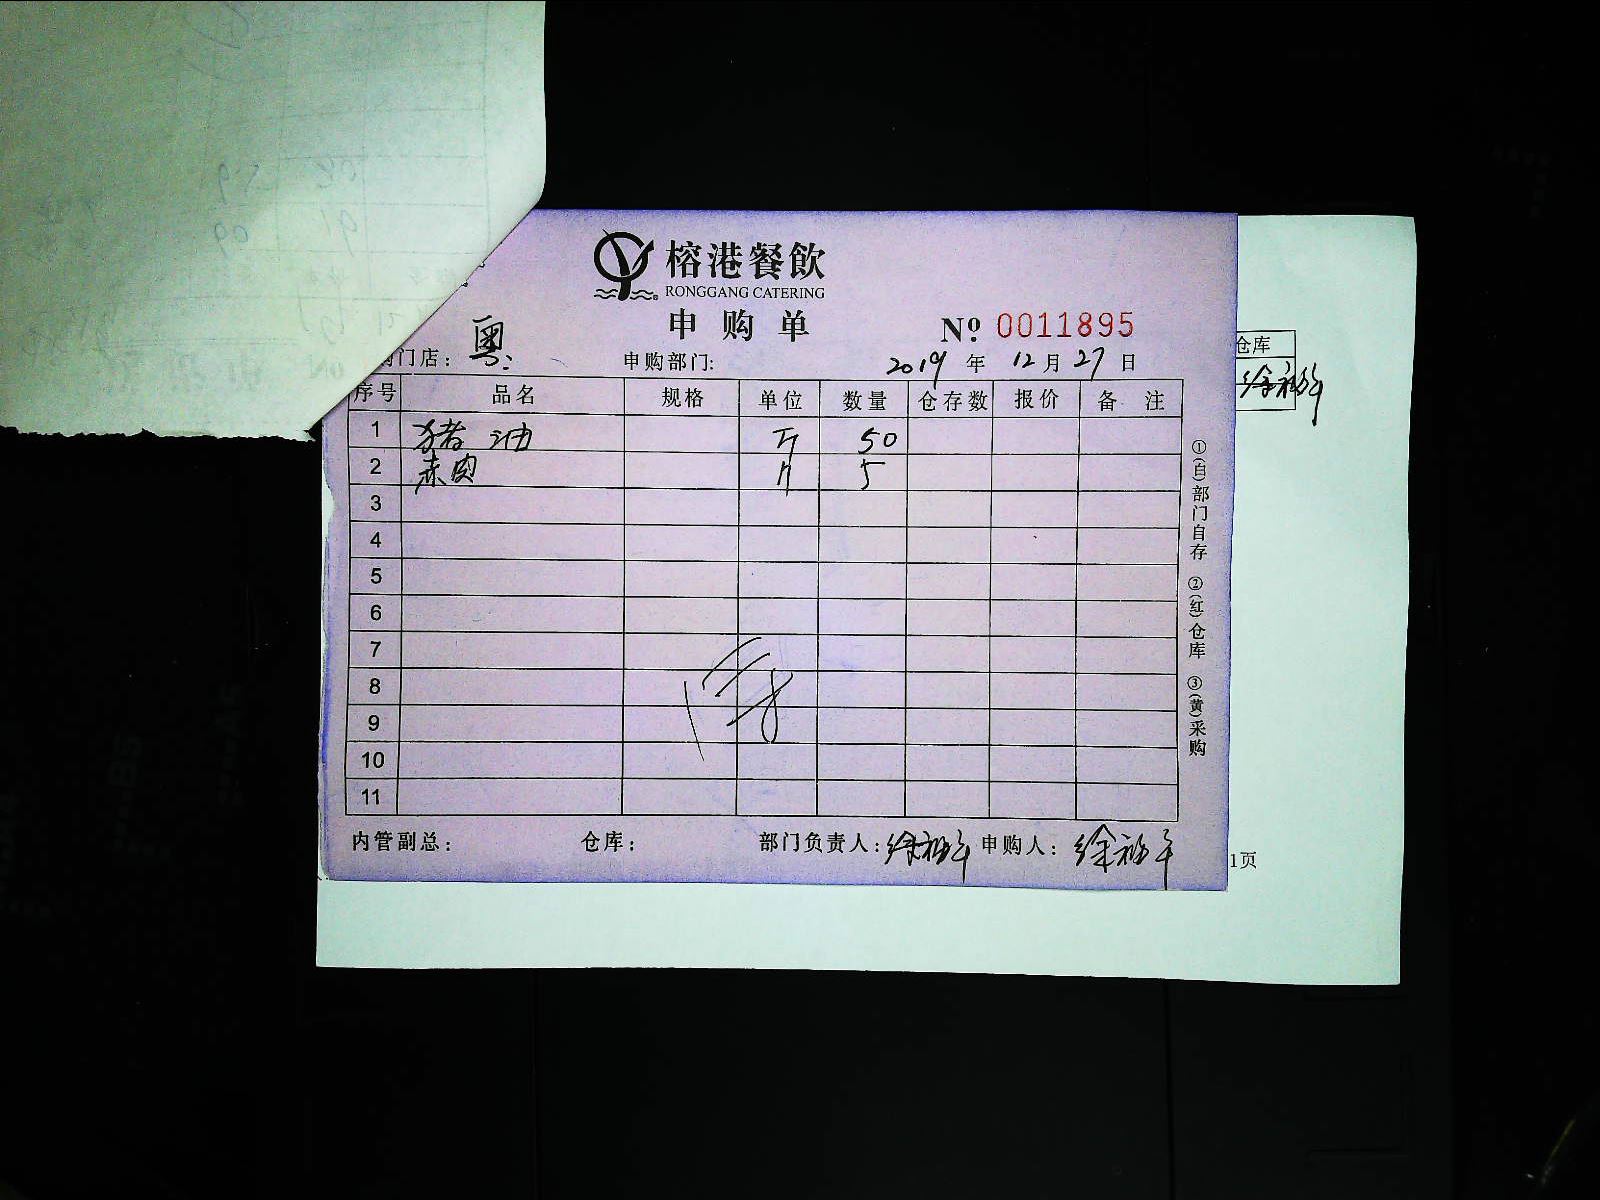 榕港餐飲
RONGGANG CATERING
申购单
№ 0011895
门店： 粤 申购部门: 2019 年 12 月 27 日
序号 品名 规格 单位 数量 仓存数 报价 备 注
1 猪油 斤 50
2 赤肉 斤 5
3
4
5
6
7
8
9
10
11
内管副总： 仓库： 部门负责人： 申购人：
①(白)部门自存 ②(红)仓库 ③(黄)采购
仓库
1页